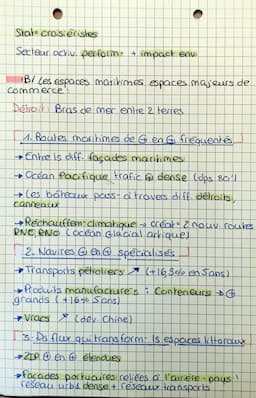 Stat° croisiéristes
Secteur activ. perform. + impact env
B/ Les espaces maritimes espaces majeurs de
commerce
Détroit : Bras de mer entre 2 terres
1. Routes maritimes de ⊕ en ⊕ fréquentés
→ Entre ls diff. façades maritimes
→ Océan Pacifique trafic ⊕ dense (dps 80')
→ Les bâteaux pass- à travers diff. détroits,
canneaux
→ Réchauffem- climatique → créat° 2 nouv. routes
PNE, PNO (océan Glacial artique)
2. Navires ⊕ en ⊕ spécialisés
→ Transports pétroliers ↗ (+16,5% en 5ans)
→ Produits manufacturés : Conteneurs → ⊕
grands (+16% 5ans)
→ Vracs ↗ (dev. Chine)
3. Ds flux qui transform- ls espaces littoraux
→ ZIP ⊕ en ⊕ étendues
→ façades portuaires reliées à l'arrière-pays :
réseau urbs dense + réseaux transports